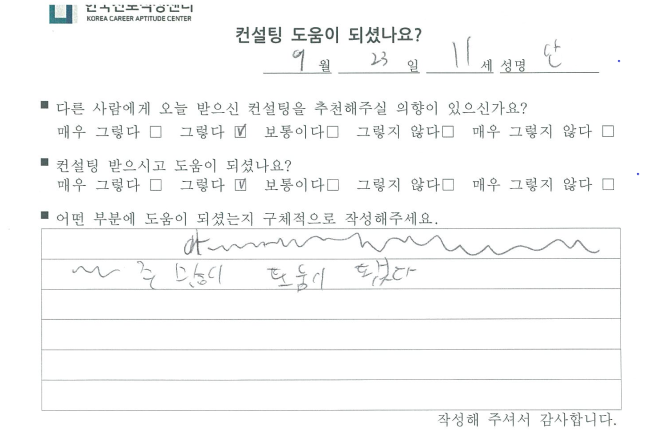 한국진로적성센터
KOREA CAREER APTITUDE CENTER
컨설팅 도움이 되셨나요?
9 월 23 일 11 세 성명 단
■ 다른 사람에게 오늘 받으신 컨설팅을 추천해주실 의향이 있으신가요?
매우 그렇다 □ 그렇다 ☑ 보통이다□ 그렇지 않다□ 매우 그렇지 않다 □
■ 컨설팅 받으시고 도움이 되셨나요?
매우 그렇다 □ 그렇다 ☑ 보통이다□ 그렇지 않다□ 매우 그렇지 않다 □
■ 어떤 부분에 도움이 되셨는지 구체적으로 작성해주세요.
아~~~~
~~ 주 많이 도움이 되었다
작성해 주셔서 감사합니다.